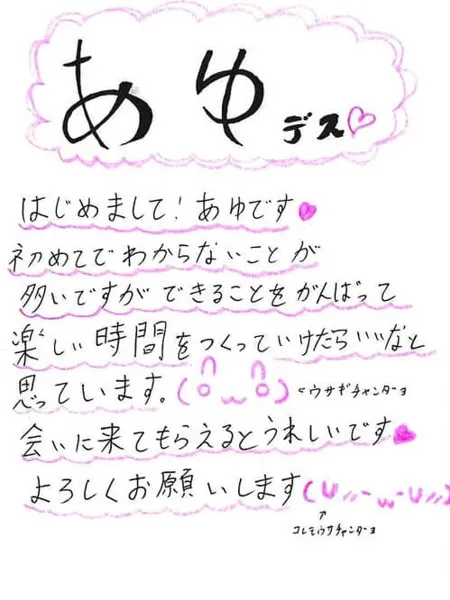 あゆ デス♡
はじめまして！あゆです♥
初めてでわからないことが
多いですができることをがんばって
楽しい時間をつくっていけたらいいなと
思っています。 ←ウサギチャンダーヨ
会いに来てもらえるとうれしいです♥
よろしくお願いします
↑
コレモウサチャンダーヨ